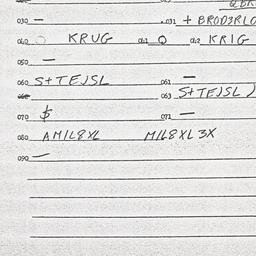 030 — .031 + BROD3RLO
040 O KRUG 041 O 042 KRIG
050 —
060 S+TEJSL 061 —
063 S+TEJSL )
070 $ 071 —
080 AMIL8XL MIL8XL3X
090 —